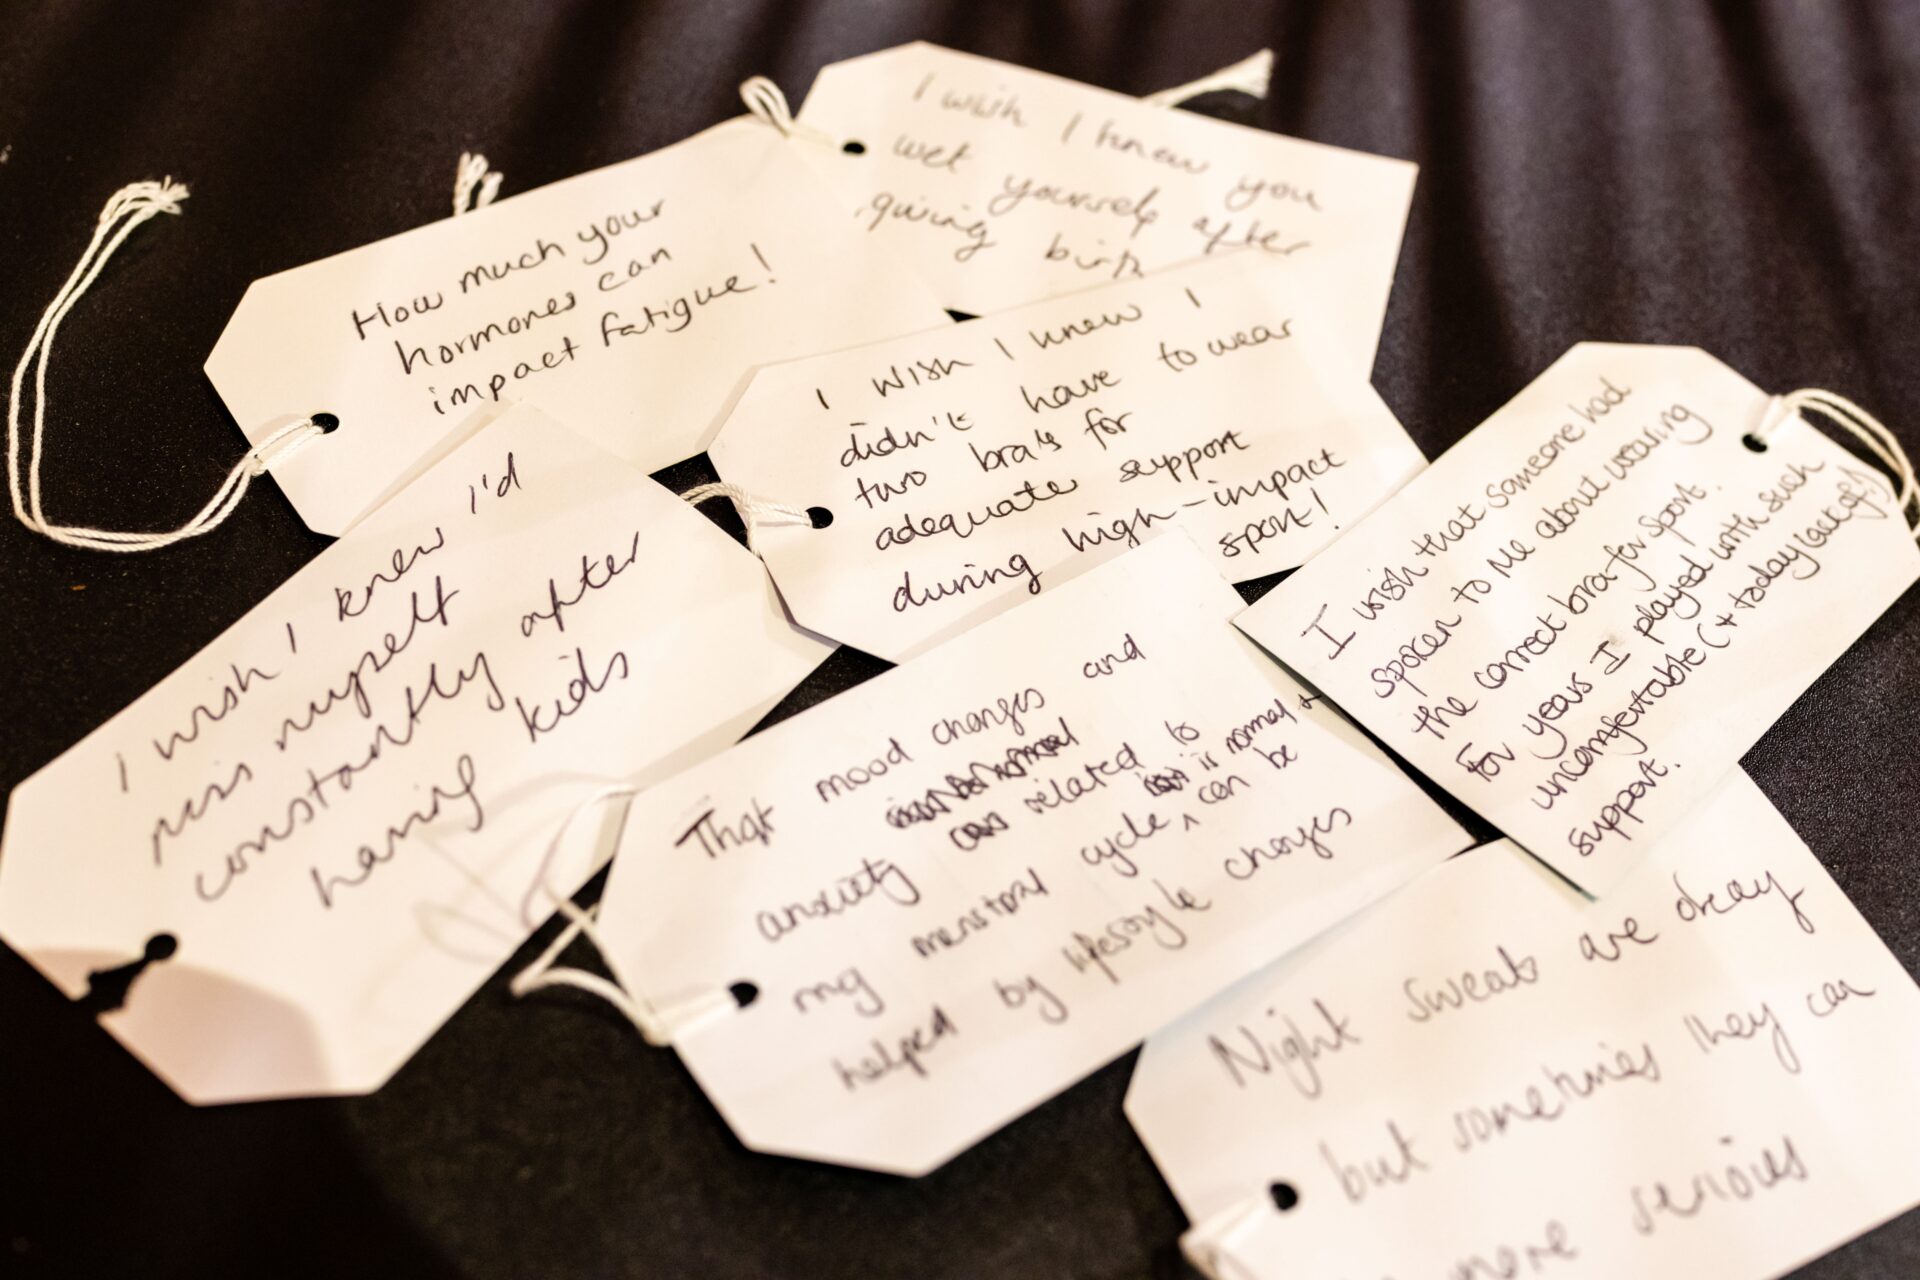 I wish I knew you
wet yourself after
giving birth
How much your
hormones can
impact fatigue!
I wish I knew I
didn't have to wear
two bra's for
adequate support
during high-impact
sport!
I wish that someone had
spoken to me about wearing
the correct bra for sport.
For years I played with such
uncomfortable (+ today lack of!)
support.
I wish I knew I'd
piss myself
constantly after
having kids
That mood changes and
anxiety related to
my menstral cycle is normal + can be
helped by lifestyle changes
Night sweats are okay
but sometimes they can
more serious